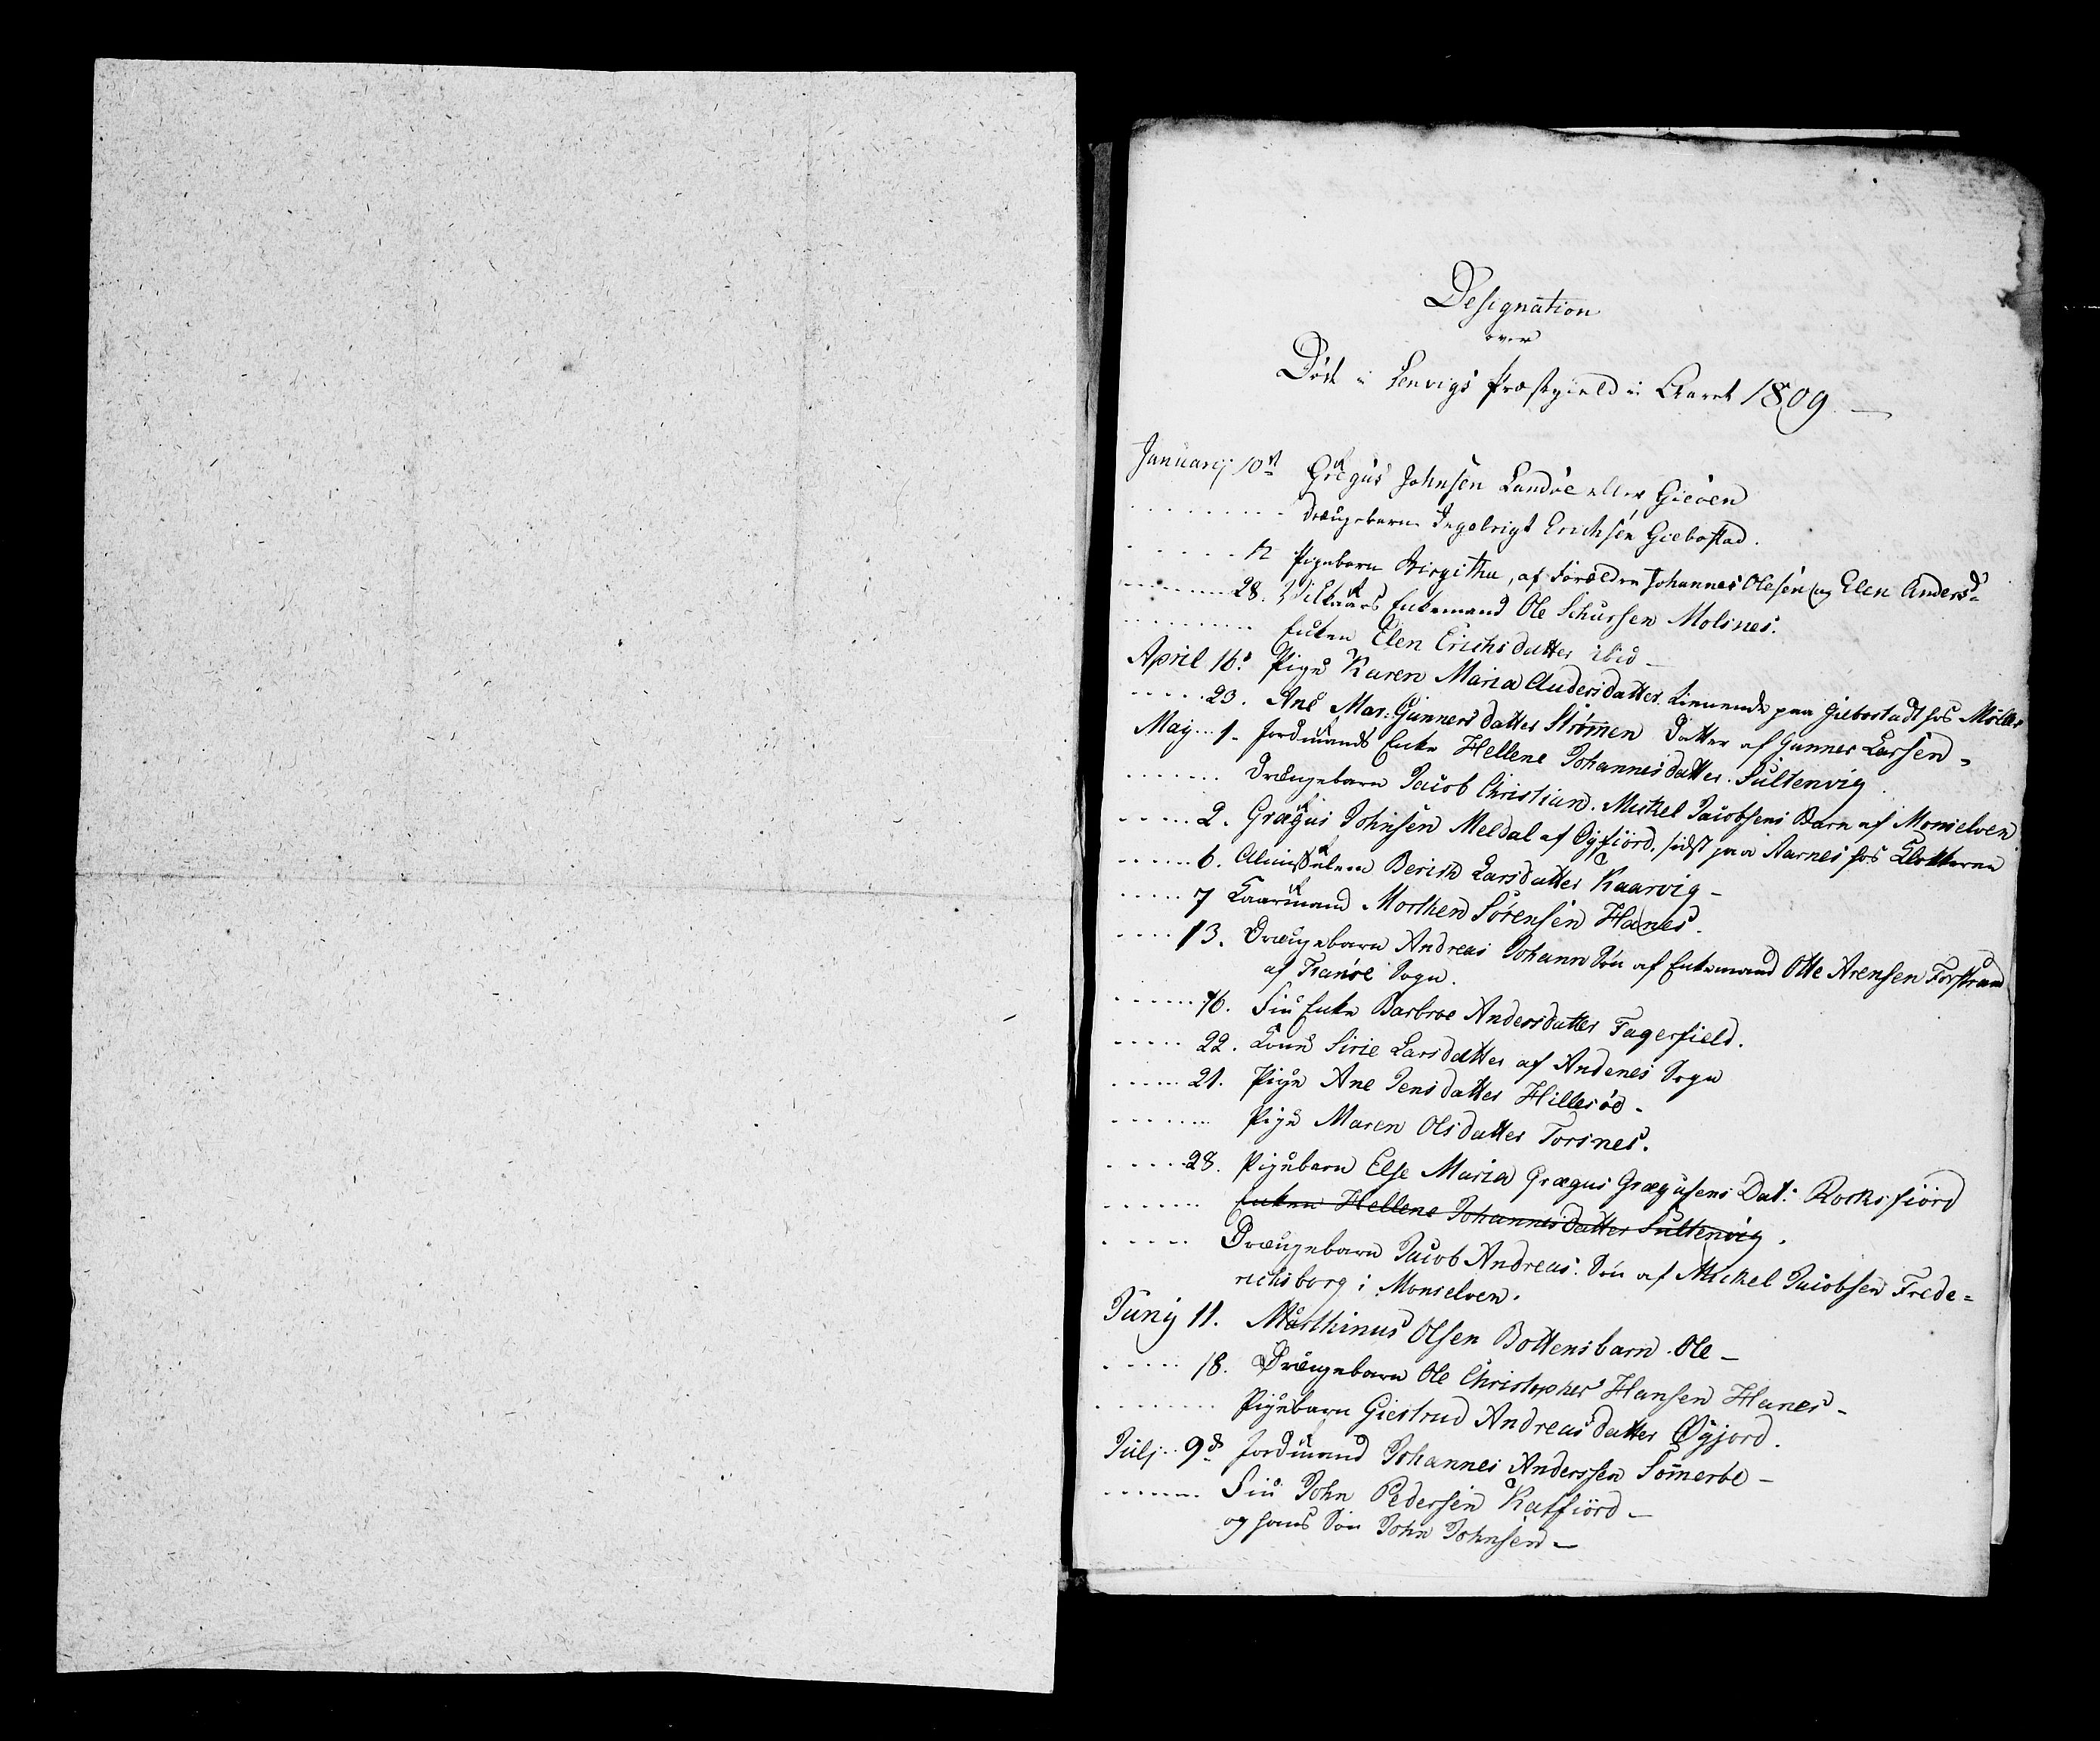 Designation
over
Död i Lenvigs Præstegield i Aaret 1809.
Januarij 10de Grægus Johnsen Sandöe eller Gieöen
Drængebarn Ingebrigt Erichsen Giebostad.
12 Pigebarn Birgitha, af Forældre Johannes Olesen og Elen Andersd.
28. Vilkaars Enkemand Ole Schursen Molsnes.
Enken Elen Erichsdatter ibid
April 16. Pige Karen Maria Andersdatter tienende paa Giebostadt hos Möller
23. Ane Mar: Gunnersdatter Strömmen Datter af Gunner Larsen
May 1. Jordmands Enke Hellene Johannesdatter Sultenvig
Drængebarn Jacob Christian. Mickel Jacobsens Barn af Monselven
2. Grægus Johnsen Meldal af Öyfiörd, sidst paa Aarnes hos Klokkeren
6. Almisselem Berith Larsdatter Kaarvig
7 Kaarmand Morthen Sörensen Hanes.
13. Drængebarn Andreas Johann Sön af Enkemand Otte Arensen Forstrand
af Tranöe Sogn.
16. Fin Enke Barbroe Andersdatter Fagerfield.
22. Kone Sirie Larsdatter af Andenes Sogn
21. Pige Ane Jensdatter Hillesöe
Pige Maren Olsdatter Torsnes.
28. Pigebarn Else Maria Grægus Grægusens Dat: Rocksfiörd
Enken Hellene Johannesdatter Sultenvig.
Drængebarn Jacob Andreas. Sön af Mickel Jacobsen Frede=
richsborg i Monselven.
Junij 11. Marthinus Olsen Bottens barn Ole
18. Drængebarn Ole Christopher Hansen Hanes
Pigebarn Giertrud Andreasdatter Öyjord.
Julj 9de Jordmand Johannes Anderssen Sömmerbe
Fin John Pedersen Katfiörd
og hans Sön John Johnsen